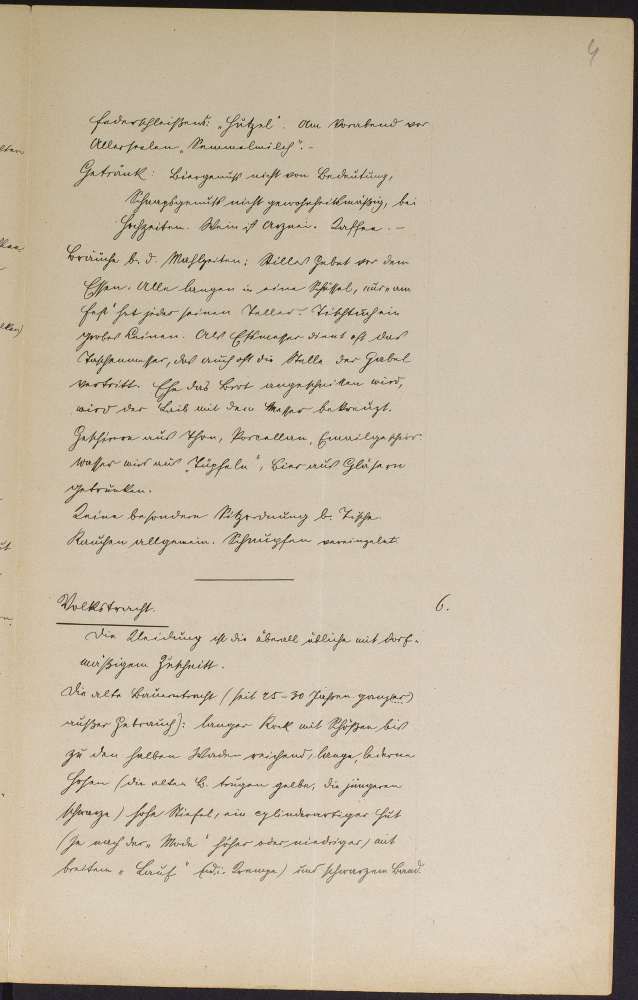 4
Federschleißens: „Hützel". Am Vorabend vor
Allerseelen „Semmelmilch". –
Getränk: Biergenuß nicht von Bedeutung,
Schnapsgenuß nicht gewohnheitsmäßig, bei
Hochzeiten. Wein ist Arznei. Kaffee. –
Bräuche b. d. Mahlzeiten: Stilles Gebet vor dem
Essen. Alle langen in eine Schüssel, nur „am
Fest" hat jeder seinen Teller. Tischtuch ein
grobes Leinen. Als Eßmesser dient oft das
Taschenmesser, das auch oft die Stelle der Gabel
vertritt. Ehe das Brot angeschnitten wird,
wird der Laib mit dem Messer bekreuzt.
Geschirre aus Thon, Porcellan, Emailgeschirr.
Wasser wird aus „Tüpfeln", Bier aus Gläsern
getrunken.
Keine besondere Sitzordnung b. Tische.
Rauchen allgemein. Schnupfen vereinzelt.
Volkstracht. 6.
Die Kleidung ist die überall übliche mit dorf-
mäßigem Zuschnitt.
Die alte Bauerntracht (seit 25–30 Jahren ganz
außer Gebrauch): langer Rock mit Schößen bis
zu den halben Waden reichend, lange, lederne
Hosen (die alten B. trugen gelbe, die jüngeren
schwarze) hohe Stiefel, ein cylinderartiger Hut
(je nach der „Mode" höher oder niedriger, mit
breitem „Lauf" (d. i. Krempe) und schwarzem Band.